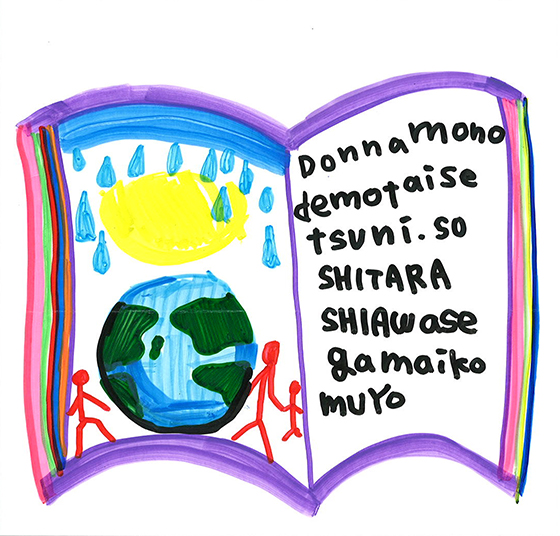 Donna mono
demotaise
tsuni. so
SHITARA
SHIAwase
gamaiko
muYo